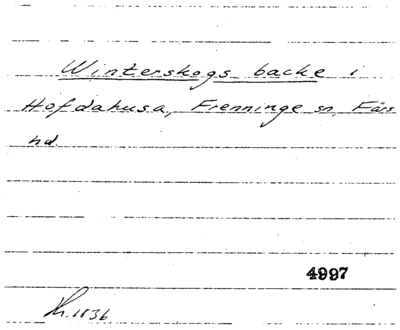 Winterskogs backe i
Hofdahusa, Frenninge sn, Färs
hd.
4997
Lh. 1836